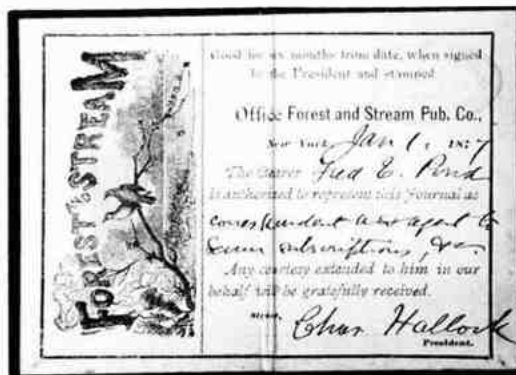 FOREST & STREAM
Good for six months from date, when signed
by the President and stamped
Office Forest and Stream Pub. Co.,
New York, Jan 1, 1877
The Bearer Fred E. Pond
is authorized to represent this Journal as
correspondent and agent to
secure subscriptions, &c.
Any courtesy extended to him in our
behalf will be gratefully received.
Chas. Hallock
President.